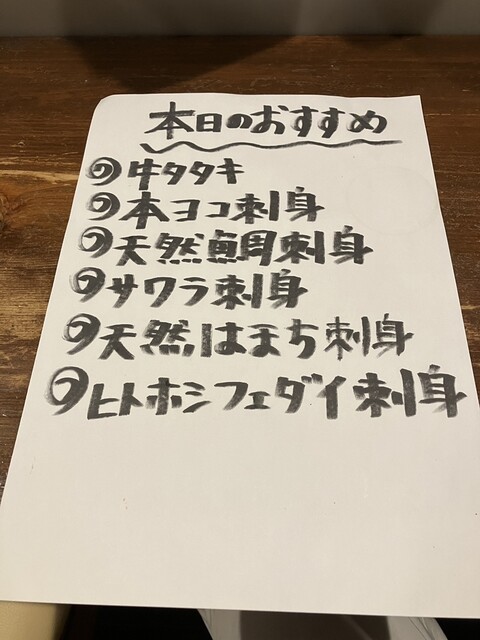 本日のおすすめ
の牛タタキ
の本ヨコ刺身
の天然鯛刺身
のサワラ刺身
の天然はまち刺身
のヒトホシフエダイ刺身